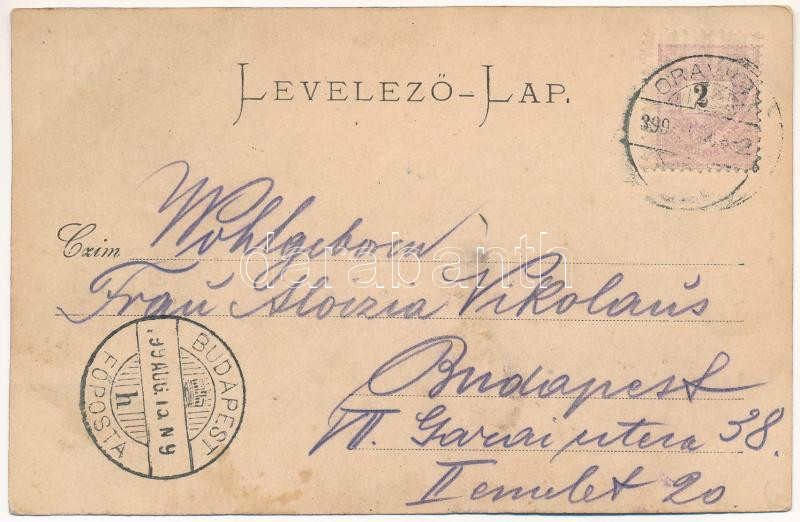 LEVELEZŐ-LAP.
ORAVI
2
899
Czim Wohlgeboren
Frau Aloizia Nikolaus
Budapest
VII. Garai utcza 38.
II emelet 20
BUDAPEST
FŐPOSTA
'99 AUG.
N9
h
darabanth